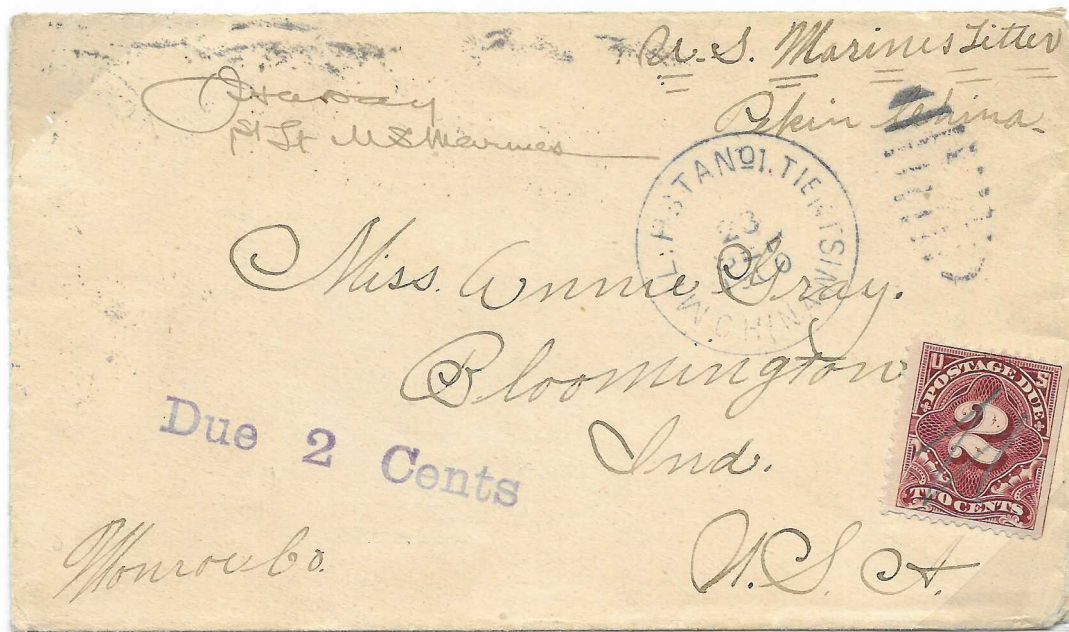 U.S. Marines Letter
Pekin China.
1st Lt US Marines
MIL. P. STA Nº1. TIENTSIN
CHINA
Miss. Annie Gray.
Bloomington
Ind.
U.S.A.
Due 2 Cents
Monroe Co.
U S
POSTAGE DUE
2
TWO CENTS